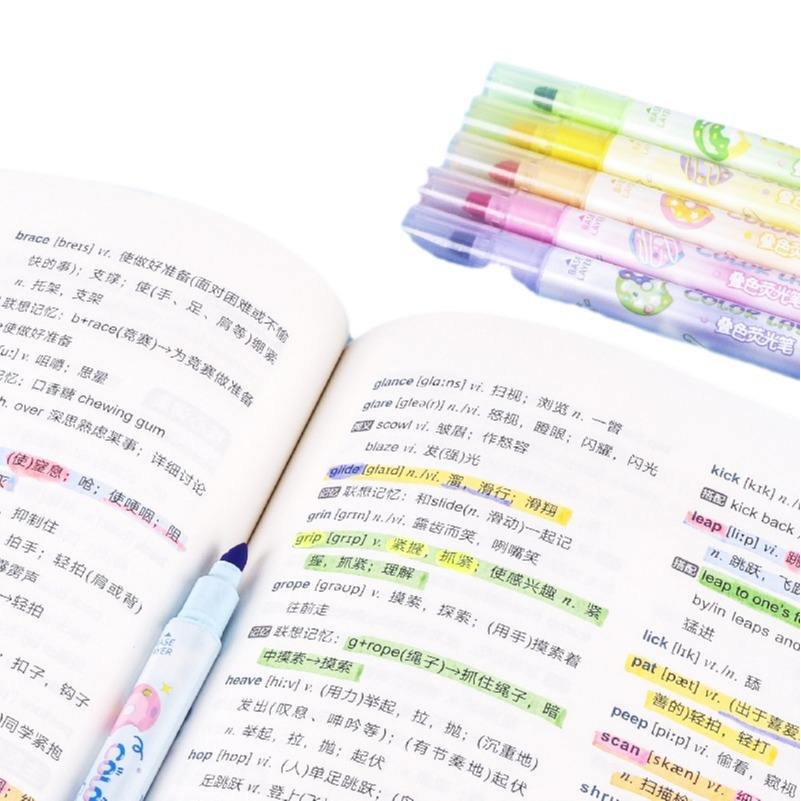 brace [breɪs] vt. 使做好准备(面对困难或不愉
快的事)；支撑；使(手、足、肩等)绷紧
n. 托架，支架
联想记忆：b+race(竞赛)→为竞赛做准备
→使做好准备
[uː] v. 咀嚼；思量
记忆：口香糖 chewing gum
over 深思熟虑某事；详细讨论
(使)窒息；呛；使哽咽；阻
抑制住
拍手；轻拍(肩或背)
雳声
→轻拍
扣子，钩子
同学紧抱
glance [glɑːns] vi. 扫视；浏览 n. 一瞥
glare [gleə(r)] n./vi. 怒视，瞪眼；闪耀，闪光
scowl vi. 皱眉；作怒容
blaze vi. 发(强)光
glide [glaɪd] n./vi. 溜，滑行；滑翔
记忆 联想记忆：和slide(n. 滑动)一起记
grin [grɪn] n./vi. 露齿而笑，咧嘴笑
grip [grɪp] v. 紧握，抓紧；使感兴趣 n. 紧
握，抓紧；理解
grope [grəʊp] v. 摸索，探索；(用手)摸索着
往前走
记忆 联想记忆：g+rope(绳子)→抓住绳子，暗
中摸索→摸索
heave [hiːv] v. (用力)举起，拉，抛；(沉重地)
发出(叹息、呻吟等)；(有节奏地)起伏
n. 举起，拉，抛；起伏
hop [hɒp] vi. (人)单足跳跃；
足跳跃 vt. 登上
kick [kɪk] n.
搭配 kick back
leap [liːp] vi. 跳
n. 跳跃，飞跃
搭配 leap to one's
by/in leaps and
猛进
lick [lɪk] vt./n. 舔
pat [pæt] vt. (出于喜爱
善的)轻拍，轻打
peep [piːp] vi. 偷看，窥视
scan [skæn] vt.
n. 扫描
shru
BASE
LAYER
BASE
LAYER
BASE
LAYER
叠色荧光笔
叠色荧光笔
BASE
LAYER
COLOR
叠色荧光笔
BASE
LAYER